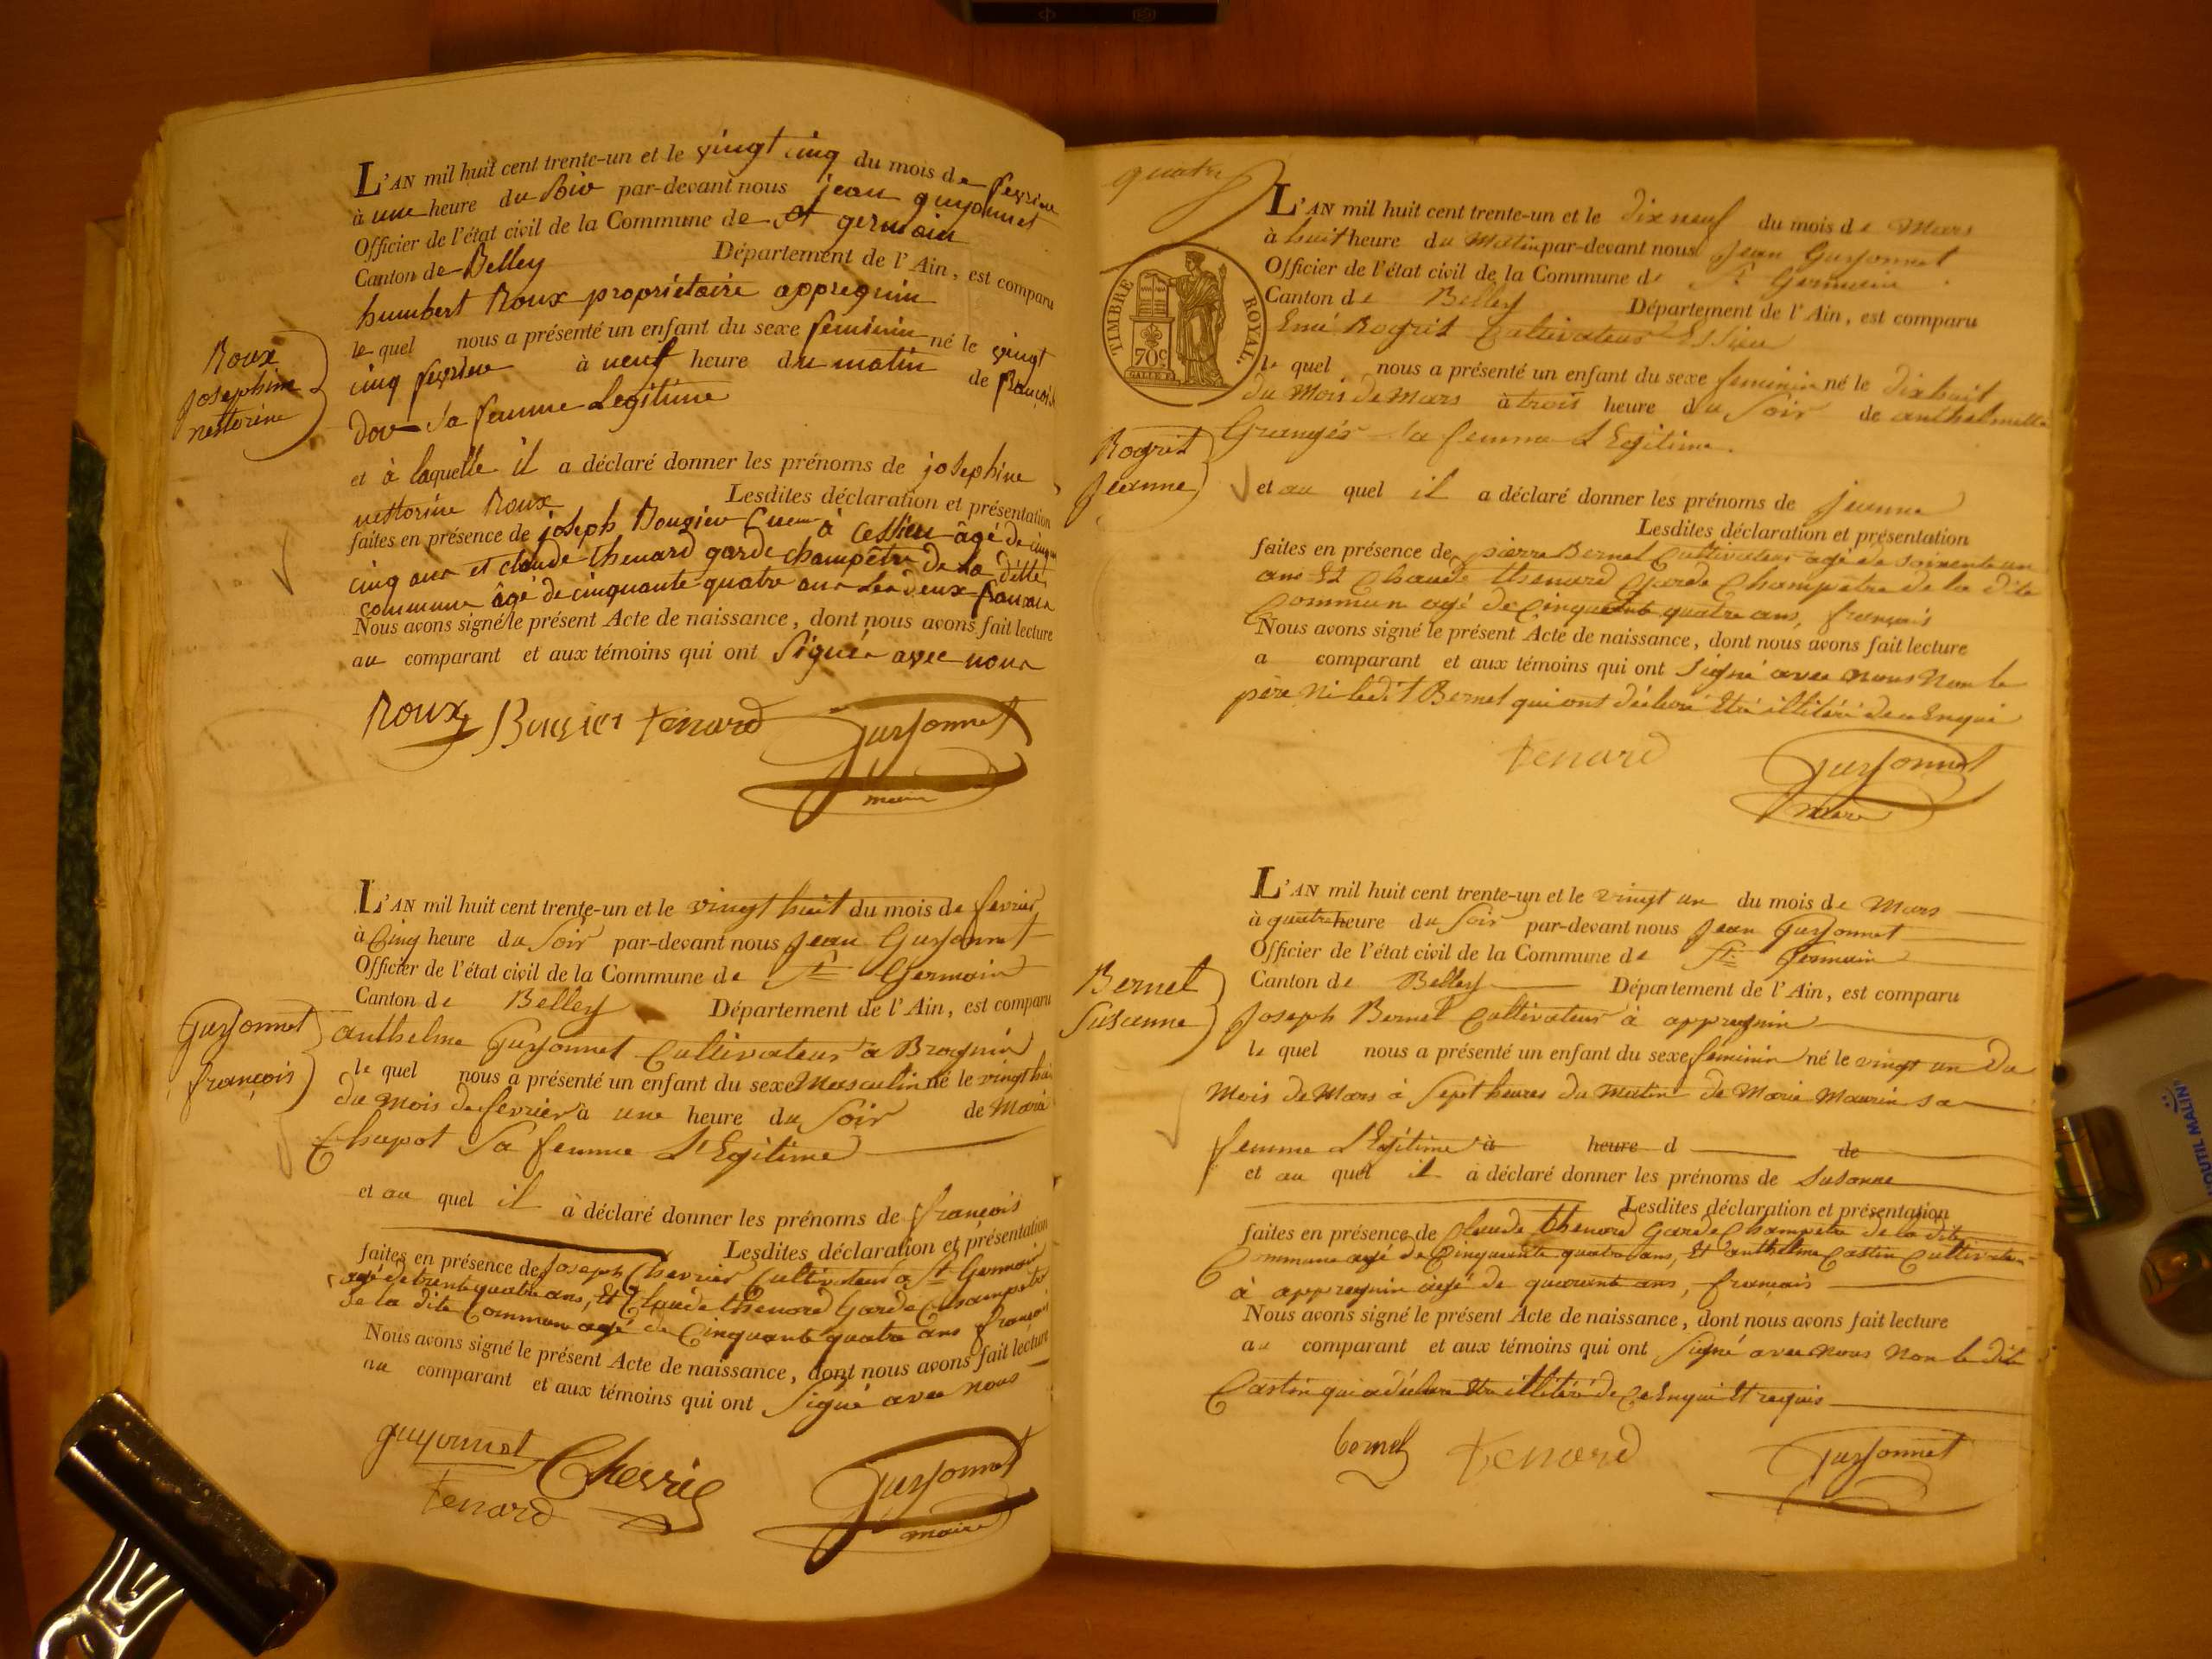 L'AN mil huit cent trente-un et le vingt cinq du mois de fevrier
à une heure du Soir par-devant nous jean guyonnet
Officier de l'état civil de la Commune de St germain
Canton de Belley Département de l'Ain, est comparu
humbert Roux propriétaire appregnin
le quel nous a présenté un enfant du sexe feminin né le vingt
cinq fevrier à neuf heure du matin de françoise
sa femme Legitime
Roux
Josephine
nestorine
et à laquelle il a déclaré donner les prénoms de josephine
nestorine Roux Lesdites déclaration et présentation
faites en présence de joseph Bougier à Cessieu âgé de
cinq ans et claude thenard garde champêtre de la ditte
commune âgé de cinquante quatre ans les deux français
Nous avons signé le présent Acte de naissance, dont nous avons fait lecture
au comparant et aux témoins qui ont Signés avec nous
Roux Bougier tenard Guyonnet
maire
L'AN mil huit cent trente-un et le vingt huit du mois de fevrier
à Cinq heure du Soir par-devant nous Jean Guyonnet
Officier de l'état civil de la Commune de St Germain
Canton de Belley Département de l'Ain, est comparu
Guyonnet
françois
anthelme Guyonnet Cultivateur à Brognin
le quel nous a présenté un enfant du sexe Masculin né le vingt huit
du Mois de fevrier à une heure du Soir de Marie
Chapot Sa femme L'Egitime
et au quel il à déclaré donner les prénoms de françois
Lesdites déclaration et présentation
faites en présence de Joseph Chevrier Cultivateur à St Germain
agé de trente quatre ans, Et Claude thenard Garde Champetre
de la dite Commun agé de Cinquante quatre ans français
Nous avons signé le présent Acte de naissance, dont nous avons fait lecture
au comparant et aux témoins qui ont Signé avec nous
guyonnet Chevrié
tenard Guyonnet
maire
quatre
L'AN mil huit cent trente-un et le dix neuf du mois de Mars
à huit heure du Matin par-devant nous Jean Guyonnet
Officier de l'état civil de la Commune de St Germain
Canton de Belley Département de l'Ain, est comparu
TIMBRE ROYAL.
70c
Emé Rogrit Cultivateur Essieu
le quel nous a présenté un enfant du sexe feminin né le dix huit
du Mois de Mars à trois heure du Soir de anthelmette
Granges sa femme L'Egitime.
Rogrit
Jeanne
et au quel il a déclaré donner les prénoms de Jeanne
Lesdites déclaration et présentation
faites en présence de pierre Bernet Cultivateur agé de soixante un
ans Et Claude thenard Garde Champêtre de la dite
Commun agé de Cinquante quatre ans, français
Nous avons signé le présent Acte de naissance, dont nous avons fait lecture
a comparant et aux témoins qui ont Signé avec nous Non le
père Ni ledit Bernet qui ont déclaré Etre illitéré de ce Enquis
tenard Guyonnet
maire
L'AN mil huit cent trente-un et le vingt un du mois de Mars
à quatre heure du Soir par-devant nous Jean Guyonnet
Officier de l'état civil de la Commune de St Germain
Canton de Belley Département de l'Ain, est comparu
Bernet
Susanne
Joseph Bernet Cultivateur à appregnin
le quel nous a présenté un enfant du sexe feminin né le vingt un du
Mois de Mars à Sept heures du Matin de Marie Maurin sa
femme L'Egitime à heure d de
et au quel il a déclaré donner les prénoms de Susanne
Lesdites déclaration et présentation
faites en présence de Claude thenard Garde Champetre de la dite
Commune agé de Cinquante quatre ans, Et anthelme Castin Cultivateur
à appregnin agé de quarante ans, français
Nous avons signé le présent Acte de naissance, dont nous avons fait lecture
au comparant et aux témoins qui ont Signé avec nous Non le dit
Castin qui a déclaré Etre illitéré de Ce Enquis Et requis
bernet tenard Guyonnet
OUTIL MALIN